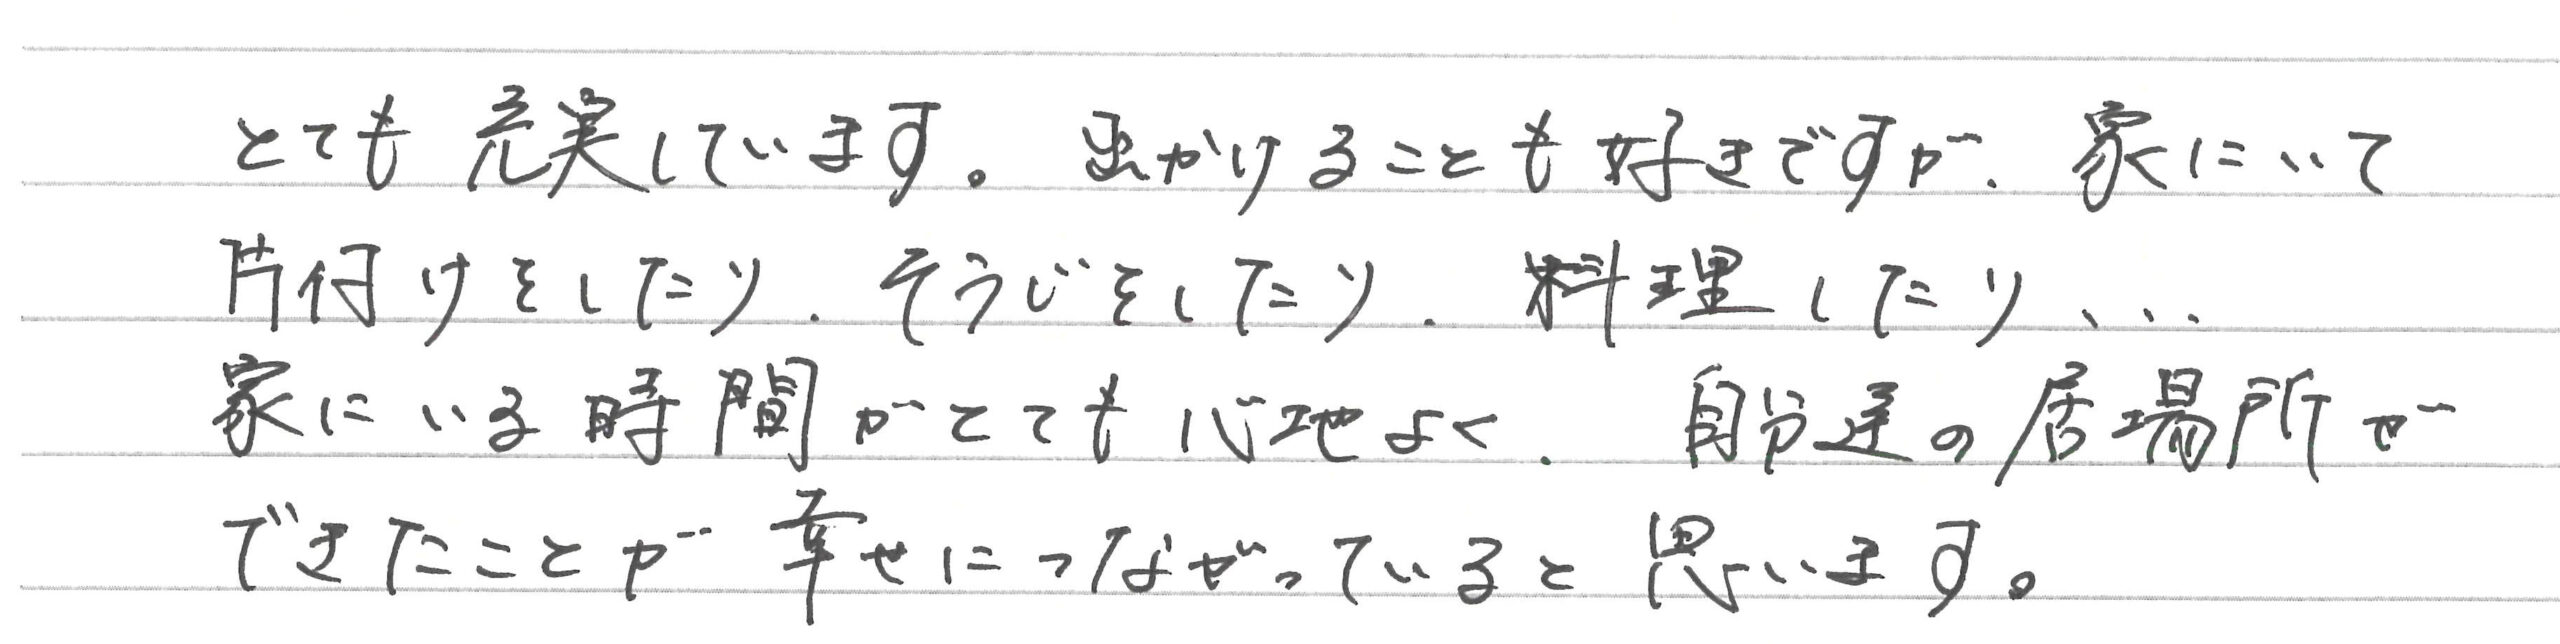 とても充実しています。出かけることも好きですが、家にいて
片付けをしたり、そうじをしたり、料理したり、、、
家にいる時間がとても心地よく、自分達の居場所が
できたことが幸せにつながっていると思います。